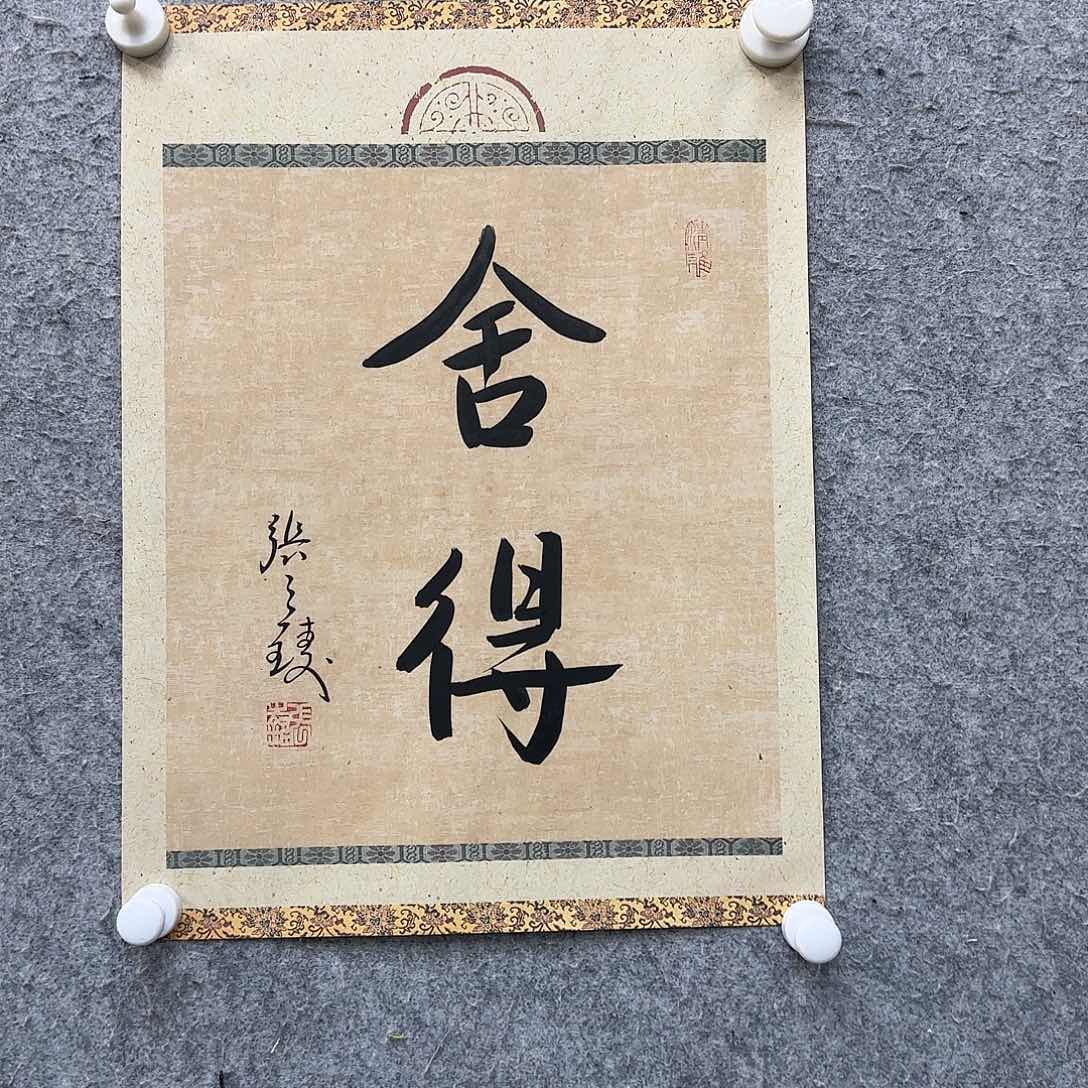 舍得
張之